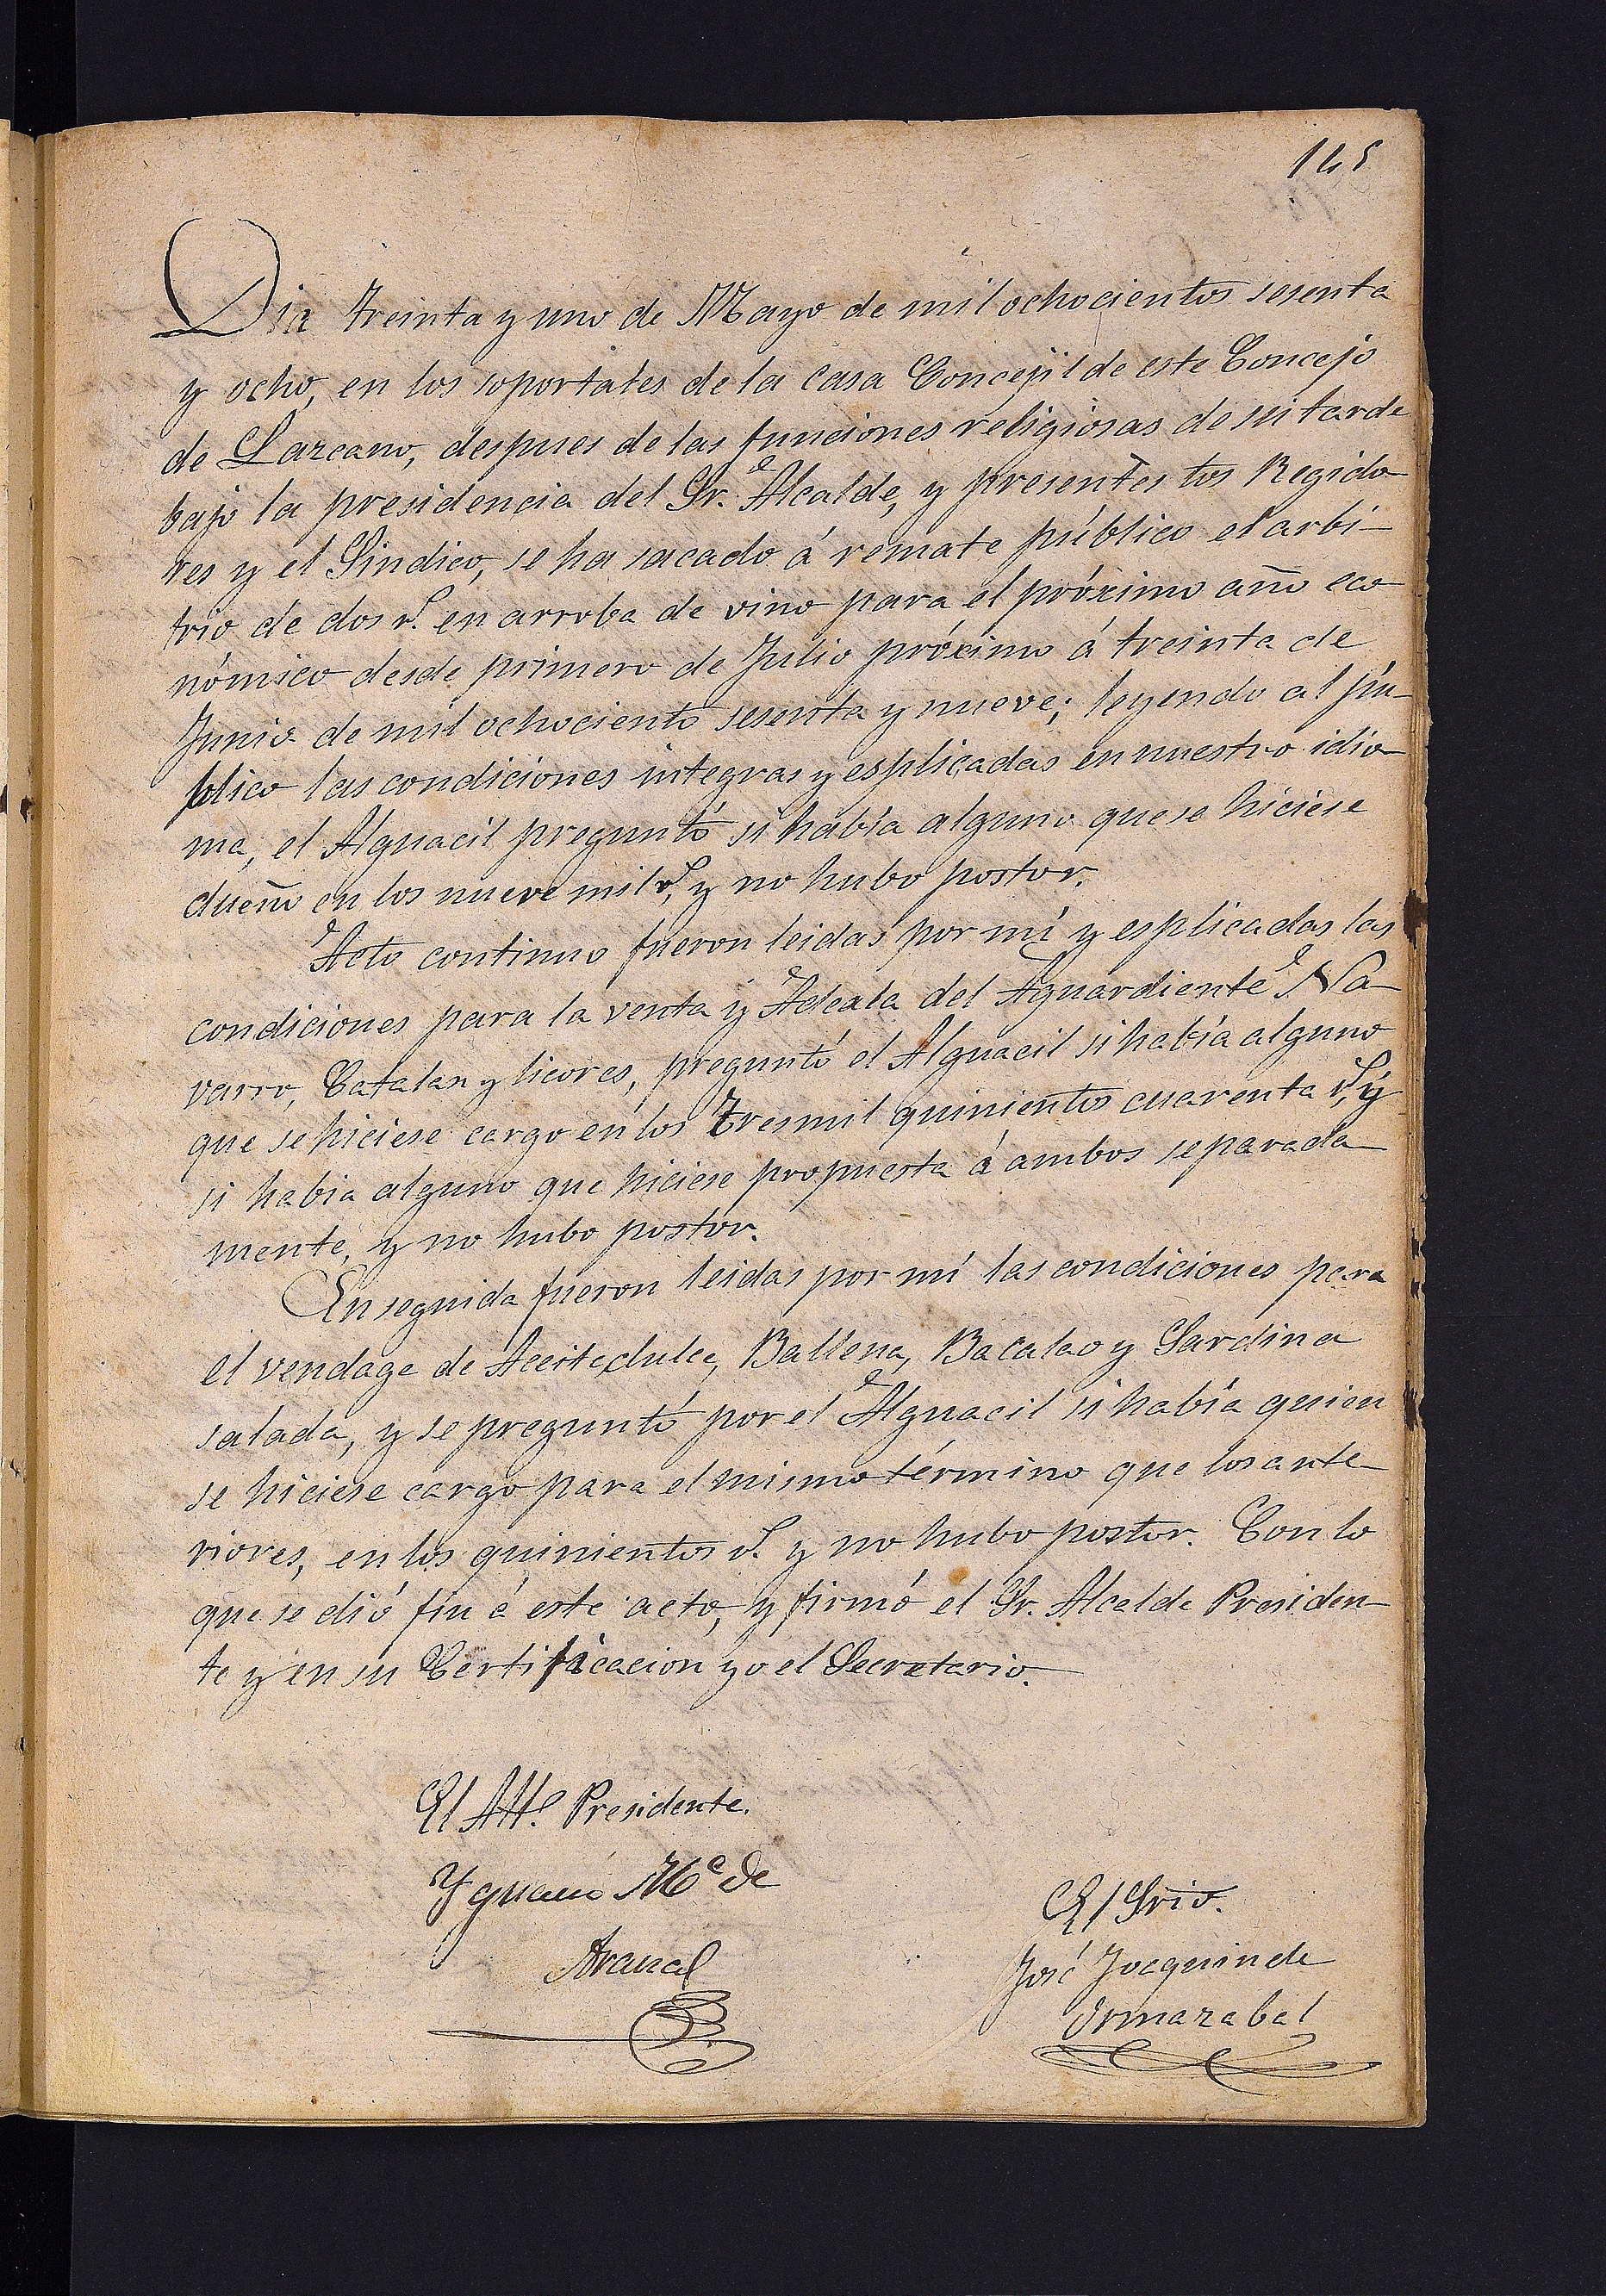 145
Dia treinta y uno de Mayo de mil ochocientos sesenta
y ocho, en los soportales de la casa Concejil de este Concejo
de Lazcano, despues de las funciones religiosas de su tarde
bajo la presidencia del Sr. Alcalde, y presentes los Regido-
res y el Sindico, se ha sacado á remate público el arbi-
trio de dos r.s en arroba de vino para el próximo año eco-
nómico desde primero de Julio próximo á treinta de
Junio de mil ochociento sesenta y nueve; leyendo al pú-
blico las condiciones integras y esplicadas en nuestro idio-
ma, el Alguacil preguntó si había alguno que se hiciese
dueño en los nueve mil r.s, y no hubo postor.
Acto continuo fueron leidas por mí y esplicadas las
condiciones para la venta y Adeala del Aguardiente Na-
varro, Catalan y licores, preguntó el Alguacil si había alguno
que se hiciese cargo en los Tres mil quinientos cuarenta r.s, y
si habia alguno que hiciese propuesta á ambos separada-
mente, y no hubo postor.
En seguida fueron leidas por mí las condiciones para
el vendage de Aceite dulce, Ballena, Bacalao y Sardina
salada, y se preguntó por el Alguacil si había quien
se hiciese cargo para el mismo término que los ante-
riores, en los quinientos r.s y no hubo postor. Con lo
que se dió fin á este acto, y firmó el Sr. Alcalde Presiden-
te y en su Certificacion yo el Secretario.
El Alle. Presidente.
Ygnacio Ma de
El Srio.
José Joaquin de
Ormazabal